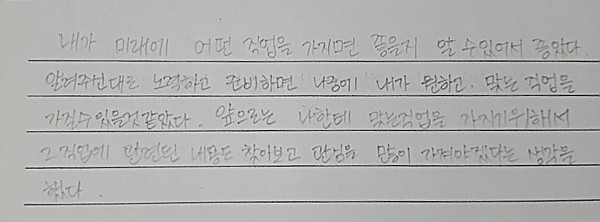 내가 미래에 어떤 직업을 가지면 좋을지 알 수 있어서 좋았다.
알려주신대로 노력하고 준비하면 나중에 내가 원하고, 맞는 직업을
가질수 있을것 같았다. 앞으로는 나한테 맞는직업을 가지기위해서
그 직업에 관련된 내용도 찾아보고 관심을 많이 가져야겠다는 생각을
했다.